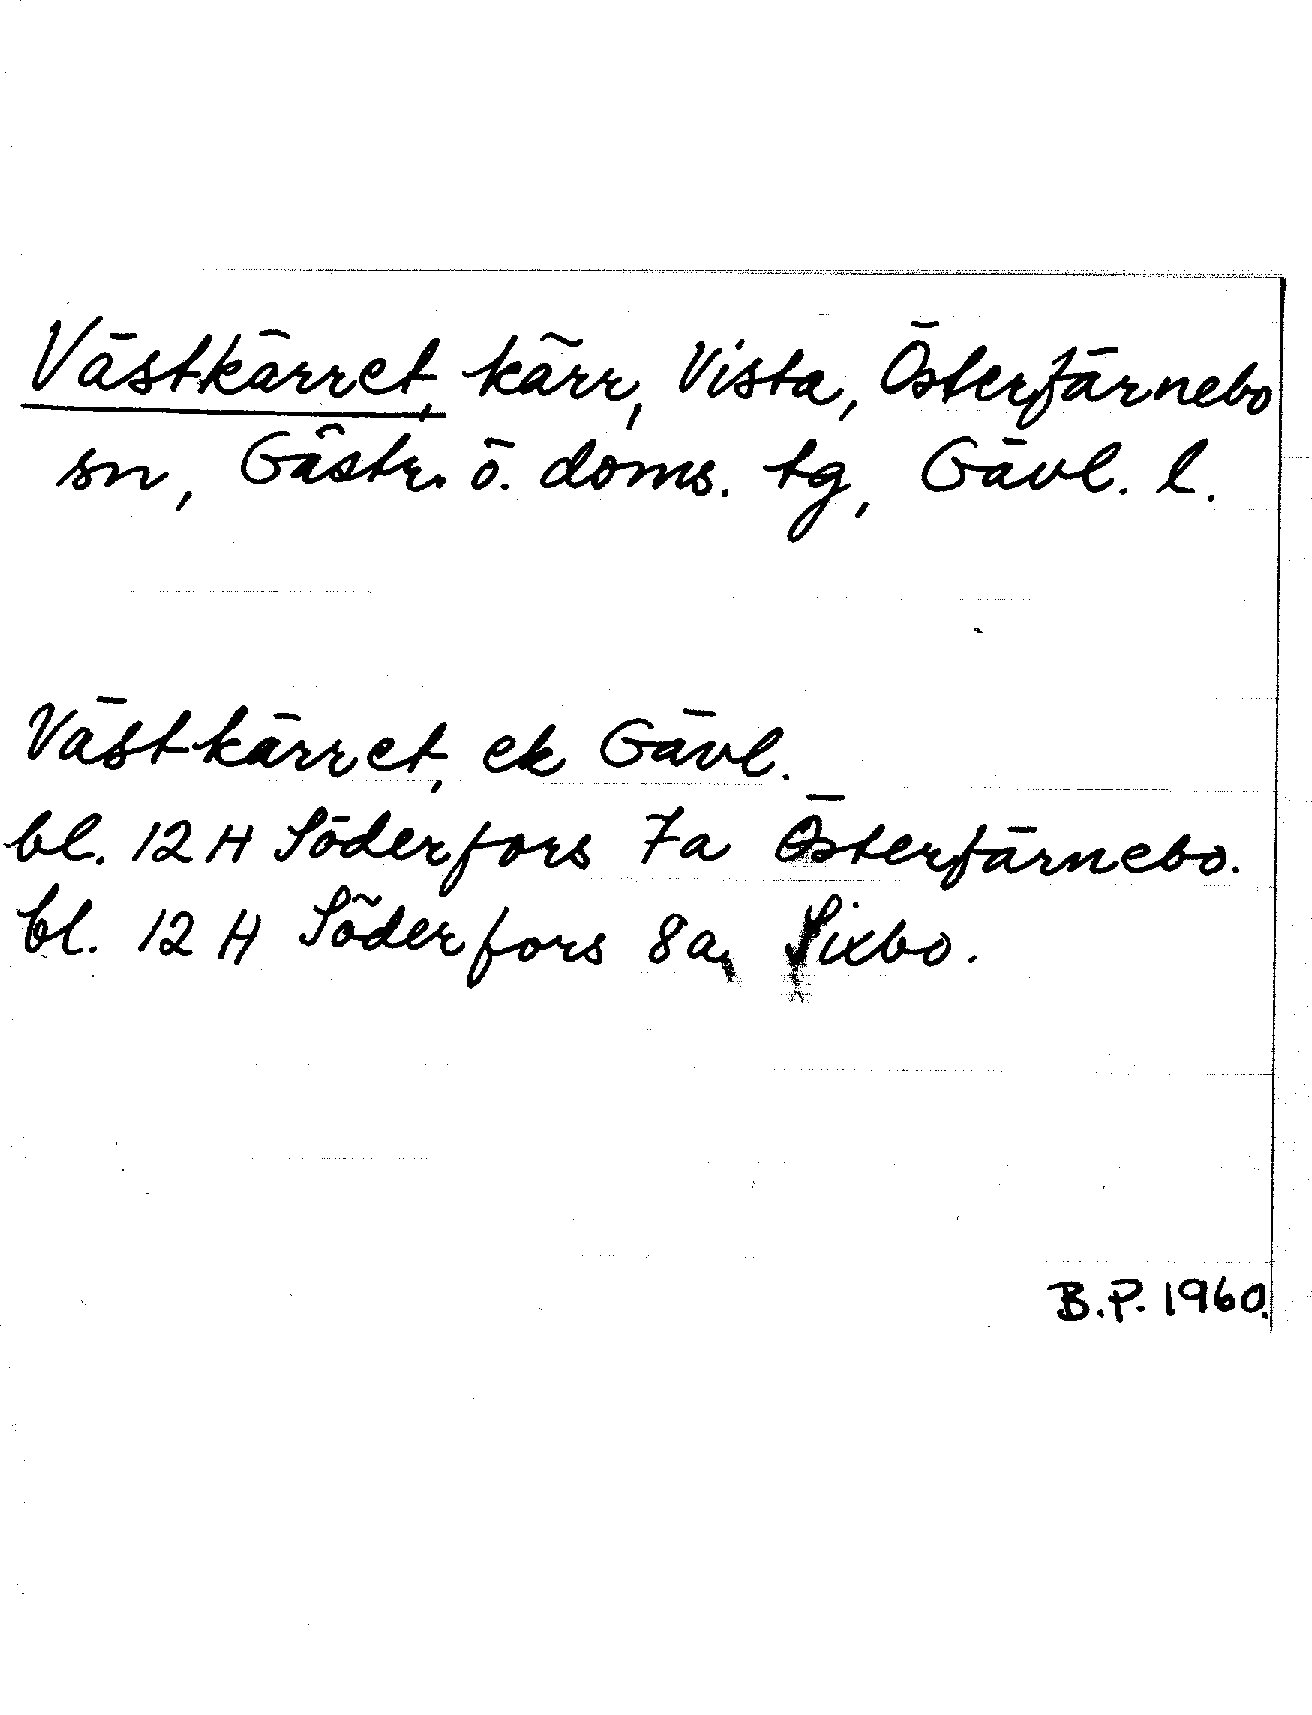 Västkärret, kärr, Vista, Österfärnebo
sn, Gästr. ö. doms. tg, Gävl. l.
Västkärret, ek Gävl.
bl. 12 H Söderfors 7a Österfärnebo.
bl. 12 H Söderfors 8a, Sixbo.
B.P. 1960.